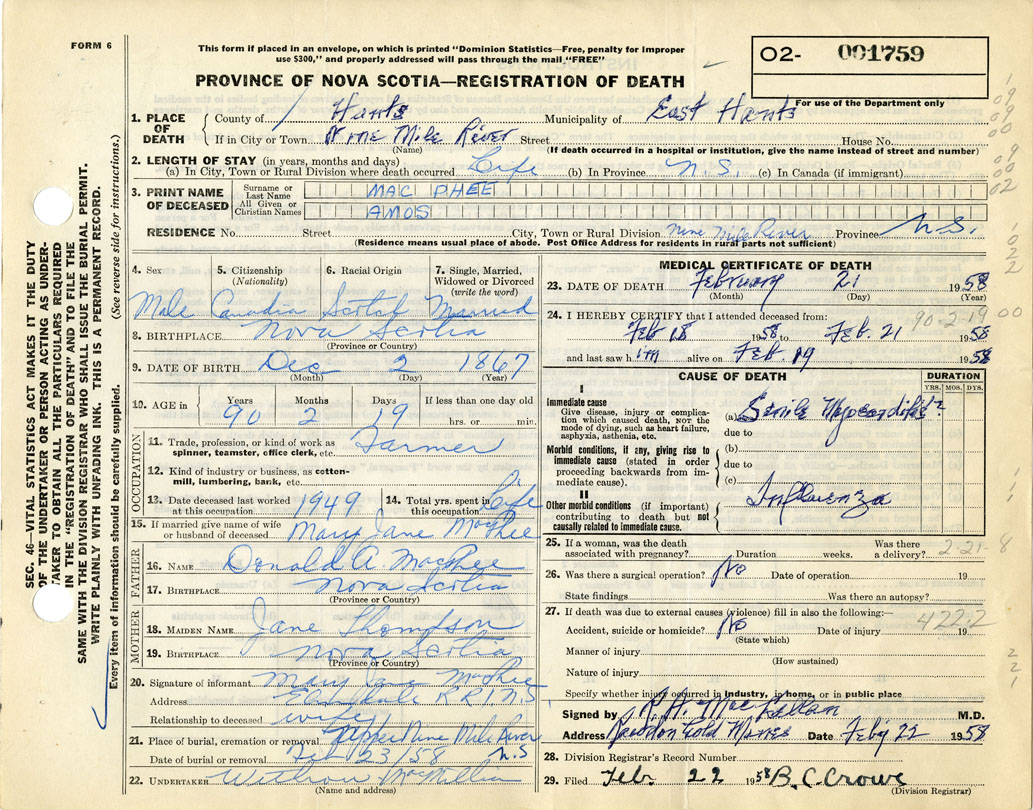 FORM 6
This form if placed in an envelope, on which is printed "Dominion Statistics—Free, penalty for Improper
use $300," and properly addressed will pass through the mail "FREE"
PROVINCE OF NOVA SCOTIA—REGISTRATION OF DEATH
O2- 001759
For use of the Department only
SEC. 46—VITAL STATISTICS ACT MAKES IT THE DUTY
OF THE UNDERTAKER OR PERSON ACTING AS UNDER-
TAKER TO OBTAIN ALL THE PARTICULARS REQUIRED
IN THE "REGISTRATION OF DEATH" AND TO FILE THE
SAME WITH THE DIVISION REGISTRAR WHO SHALL ISSUE THE BURIAL PERMIT.
WRITE PLAINLY WITH UNFADING INK. THIS IS A PERMANENT RECORD.
Every item of information should be carefully supplied. (See reverse side for instructions.)
1. PLACE OF DEATH County of Hants Municipality of East Hants
If in City or Town Nine Mile River Street House No.
(Name) (If death occurred in a hospital or institution, give the name instead of street and number)
2. LENGTH OF STAY (in years, months and days)
(a) In City, Town or Rural Division where death occurred Life (b) In Province N.S. (c) In Canada (if immigrant)
3. PRINT NAME OF DECEASED Surname or Last Name MAC PHEE
All Given or Christian Names AMOS
RESIDENCE No. Street City, Town or Rural Division Nine Mile River Province N.S.
(Residence means usual place of abode. Post Office Address for residents in rural parts not sufficient)
4. Sex 5. Citizenship (Nationality) 6. Racial Origin 7. Single, Married, Widowed or Divorced (write the word)
Male Canadia Scotch Married
8. BIRTHPLACE Nova Scotia
(Province or Country)
9. DATE OF BIRTH Dec 2 1867
(Month) (Day) (Year)
10. AGE in Years Months Days If less than one day old
90 2 19 hrs. or min.
OCCUPATION
11. Trade, profession, or kind of work as spinner, teamster, office clerk, etc. Farmer
12. Kind of industry or business, as cotton-mill, lumbering, bank, etc.
13. Date deceased last worked at this occupation 1949 14. Total yrs. spent in this occupation Life
15. If married give name of wife or husband of deceased Mary Jane MacPhee
FATHER
16. NAME Donald A MacPhee
17. BIRTHPLACE Nova Scotia
(Province or Country)
MOTHER
18. MAIDEN NAME Jane Thompson
19. BIRTHPLACE Nova Scotia
(Province or Country)
20. Signature of informant Mary Jane MacPhee
Address Elmsdale R R 1, N.S
Relationship to deceased wife
21. Place of burial, cremation or removal Upper Nine Mile River
Date of burial or removal Feb 23/58 N.S
22. UNDERTAKER Withrow MacMillan
(Name and address)
MEDICAL CERTIFICATE OF DEATH
23. DATE OF DEATH February 21 1958
(Month) (Day) (Year)
24. I HEREBY CERTIFY that I attended deceased from: 90-2-19 00
Feb 18 1958 to Feb. 21 1958
and last saw him alive on Feb 19 1958
CAUSE OF DEATH DURATION
YRS. MOS. DYS.
I
Immediate cause
Give disease, injury or complica-
tion which caused death, NOT the
mode of dying, such as heart failure,
asphyxia, asthenia, etc.
(a) Senile Myocarditis?
due to
Morbid conditions, if any, giving rise to
immediate cause (stated in order
proceeding backwards from im-
mediate cause).
(b)
due to
(c)
II
Other morbid conditions (if important)
contributing to death but not
causally related to immediate cause.
Influenza
25. If a woman, was the death associated with pregnancy? Duration weeks. Was there a delivery? 2-21-8
26. Was there a surgical operation? No Date of operation 19
State findings Was there an autopsy?
27. If death was due to external causes (violence) fill in also the following:— 422.2
Accident, suicide or homicide? No Date of injury 19
(State which)
Manner of injury
(How sustained)
Nature of injury
Specify whether injury occurred in industry, in home, or in public place
Signed by R. H. MacLellan M.D.
Address Rawdon Gold Mines Date Feb'y 22 1958
28. Division Registrar's Record Number
29. Filed Feb. 22 1958 B. C. Crowe
(Division Registrar)